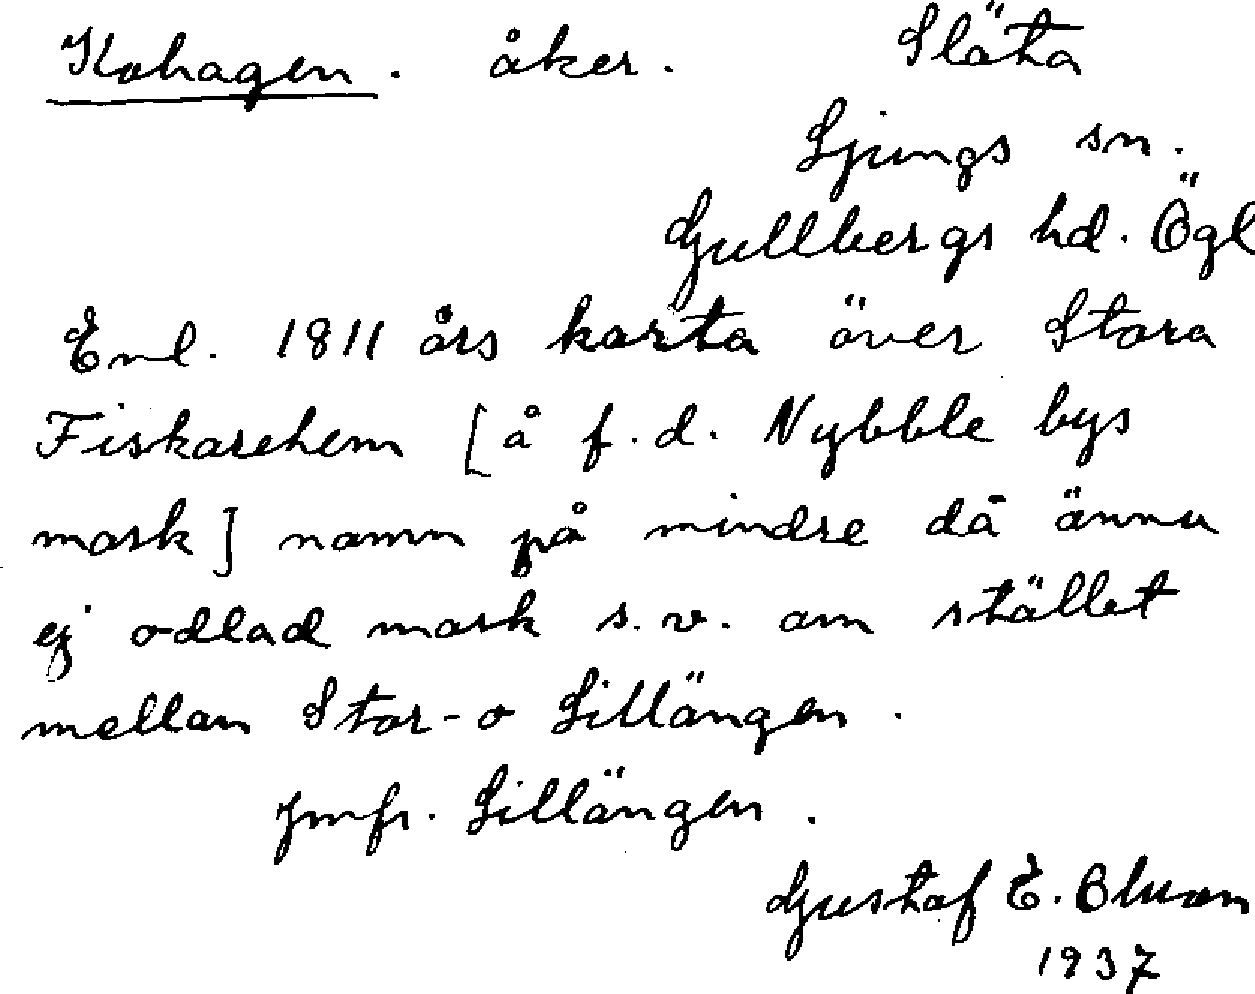 Kohagen. åker. Släta
Ljungs sn.
Gullbergs hd. Ögl
Enl. 1811 års karta över Stora
Fiskarehem [å f.d. Nybble bys
mark] namn på mindre då ännu
ej odlad mark s.v. om stället
mellan Stor- o Lillängen.
Jmfr. Lillängen.
Gustaf E.
1937